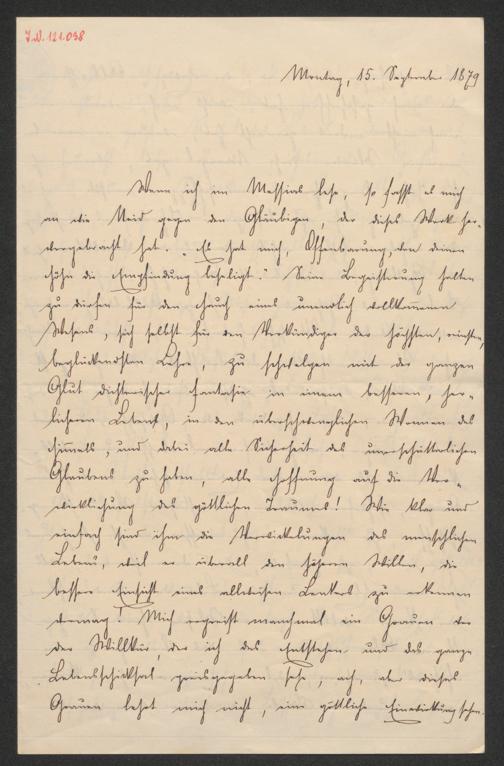 J.N. 121.038
Montag, 15. September 1879
Wenn ich im Messias lese, so fasst es mich
an wie Neid gegen den Gläubigen, der dieses Werk her-
vorgebracht hat. „Es hat mich, Offenbarung, von deinen
Höhn die Empfindung beseligt." Seine Begeisterung halten
zu dürfen für den Hauch eines unendlich vollkommenen
Wesens, sich selbst für den Verkündiger der höchsten, reinsten,
beglückendsten Lehre, zu schwelgen mit der ganzen
Glut dichterischer Fantasie in einem besseren, herr-
licheren Leben, in den überschwenglichen Wonnen des
Himmels, und dabei alle Sicherheit des unerschütterlichen
Glaubens zu haben, alle Hoffnung auf die Ver-
wirklichung des göttlichen Traumes! Wie klar und
einfach sind ihm die Verwickelungen des menschlichen
Lebens, weil er überall den höheren Willen, die
bessere Einsicht eines allweisen Lenkers zu erkennen
vermag! Mich ergreift manchmal ein Grauen vor
der Willkür, der ich das Entstehen und das ganze
Lebensschicksal preisgegeben sehe, ach, aber dieses
Grauen lehrt mich nicht, eine göttliche Einwirkung sehen.